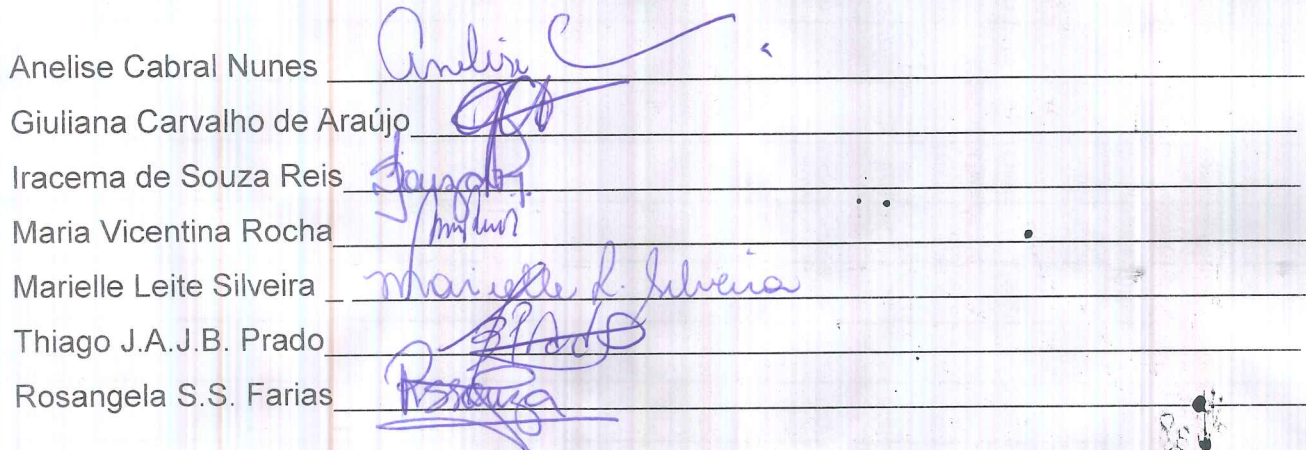 Anelise Cabral Nunes Anelise C
Giuliana Carvalho de Araújo
Iracema de Souza Reis
Maria Vicentina Rocha
Marielle Leite Silveira Marielle L. Silveira
Thiago J.A.J.B. Prado
Rosangela S.S. Farias